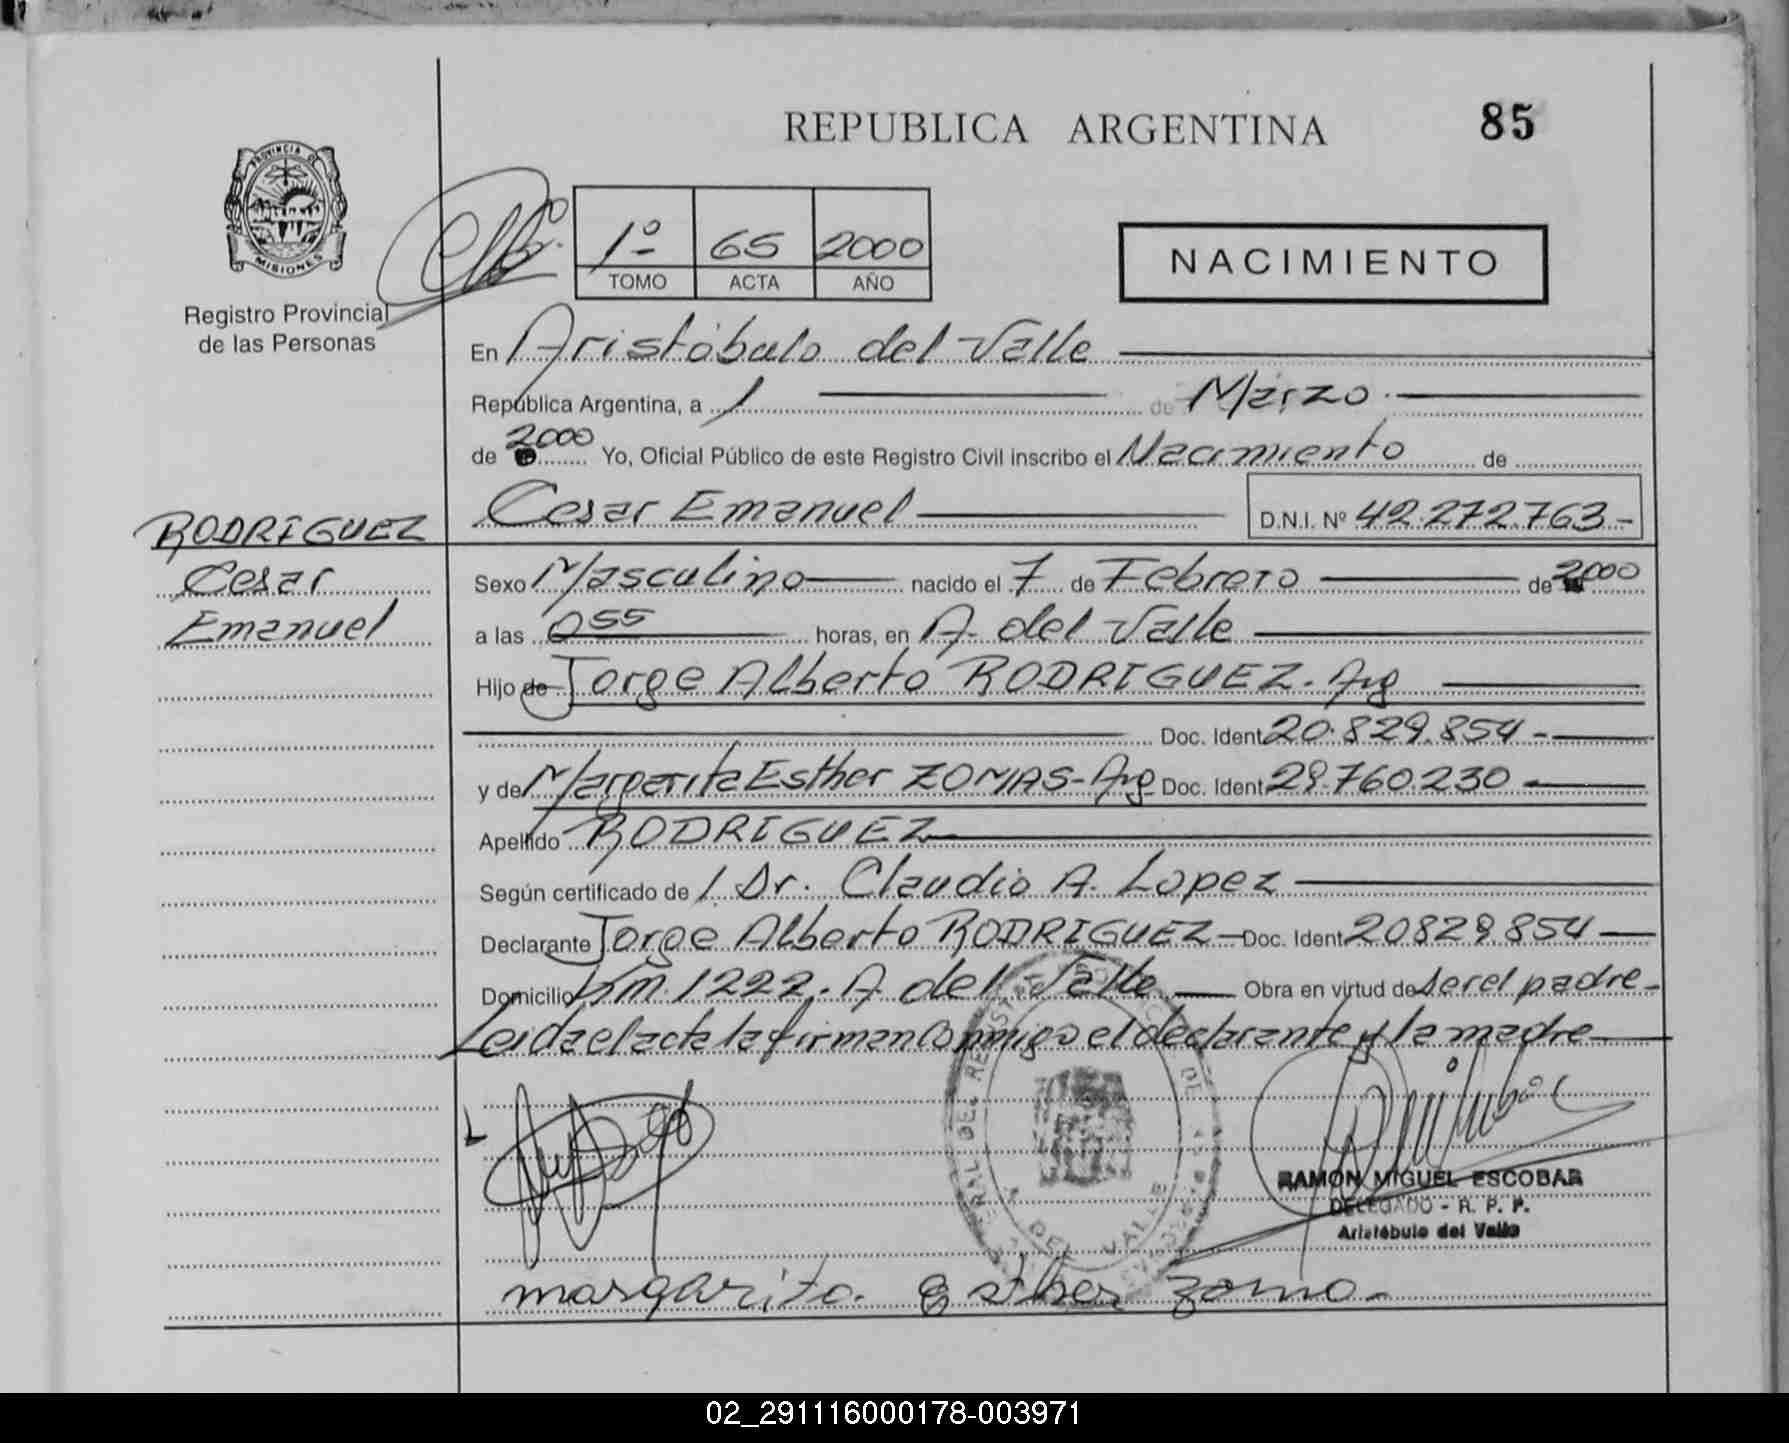 REPUBLICA ARGENTINA
85
PROVINCIA DE
MISIONES
Registro Provincial
de las Personas
1º 65 2000
TOMO ACTA AÑO
NACIMIENTO
En Aristóbulo del Valle
República Argentina, a 1 de Marzo
de 2000 Yo, Oficial Público de este Registro Civil inscribo el Nacimiento de
Cesar Emanuel D.N.I. Nº 42.272.763-
RODRIGUEZ
Cesar
Emanuel
Sexo Masculino nacido el 7 de Febrero de 2000
a las 0 55 horas, en A. del Valle
Hijo de Jorge Alberto RODRIGUEZ. Arg
Doc. Ident 20.829.854-
y de Margarita Esther ZOMAS-Arg Doc. Ident 29.760.230
Apellido RODRIGUEZ
Según certificado de / Dr. Claudio A. Lopez
Declarante Jorge Alberto RODRIGUEZ- Doc. Ident 20829.854
Domicilio Km. 1222. A del Valle Obra en virtud de ser el padre-
Leida el acta la firman conmigo el declarante y la madre
RAMON MIGUEL ESCOBAR
DELEGADO - R. P. P.
Aristóbulo del Valle
margarita Esther zoma-
02_291116000178-003971